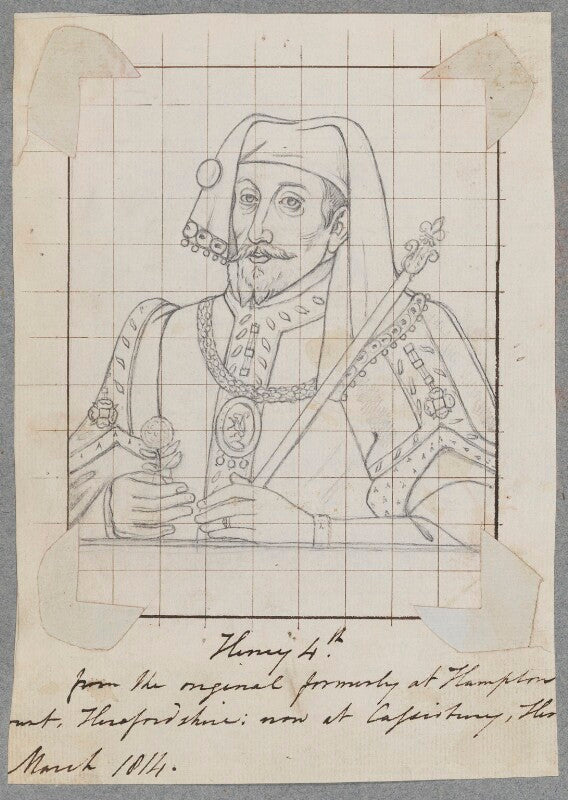 Henry 4th
from the original formerly at Hampton
urt, Herefordshire: now at Cassiobury, Her
March 1814.